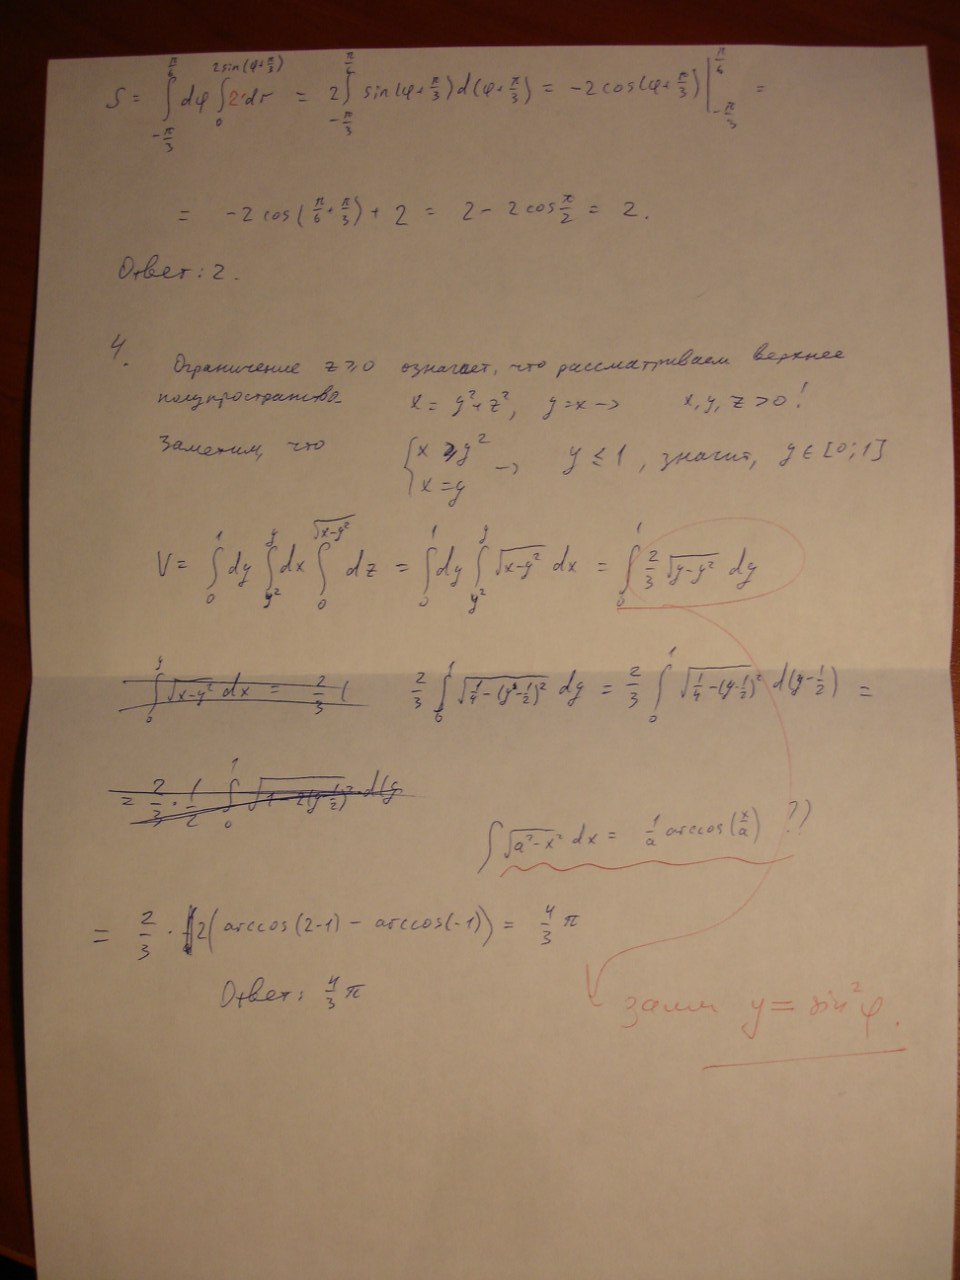 S = ∫_{-π/3}^{π/6} dφ ∫_0^{2sin(φ+π/3)} 2·dr = 2∫_{-π/3}^{π/6} sin(φ+π/3)d(φ+π/3) = -2cos(φ+π/3)|_{-π/3}^{π/6} =
= -2cos(π/6+π/3) + 2 = 2 - 2cos π/2 = 2.
Ответ: 2.
4.
Ограничение z ≥ 0 означает, что рассматриваем верхнее
полупространство. x = y²+z², y=x → x, y, z > 0!
Заметим, что {x ≥ y², x = y → y ≤ 1, значит, y ∈ [0; 1]
V = ∫_0^1 dy ∫_{y²}^y dx ∫_0^{√(x-y²)} dz = ∫_0^1 dy ∫_{y²}^y √(x-y²) dx = ∫_0^1 2/3 √(y-y²) dy
∫_0^y √(x-y²) dx = 2/3 ( 2/3 ∫_0^1 √(1/4-(y-1/2)²) dy = 2/3 ∫_0^1 √(1/4-(y-1/2)²) d(y-1/2) =
= 2/3 · 1/2 ∫_0^1 √(1-2(y-1/2)²) · d(y
∫ √(a²-x²) dx = 1/a arccos(x/a) ??
= 2/3 · 2(arccos(2-1) - arccos(-1)) = 4/3 π
Ответ: 4/3 π
зам y = sin²φ.